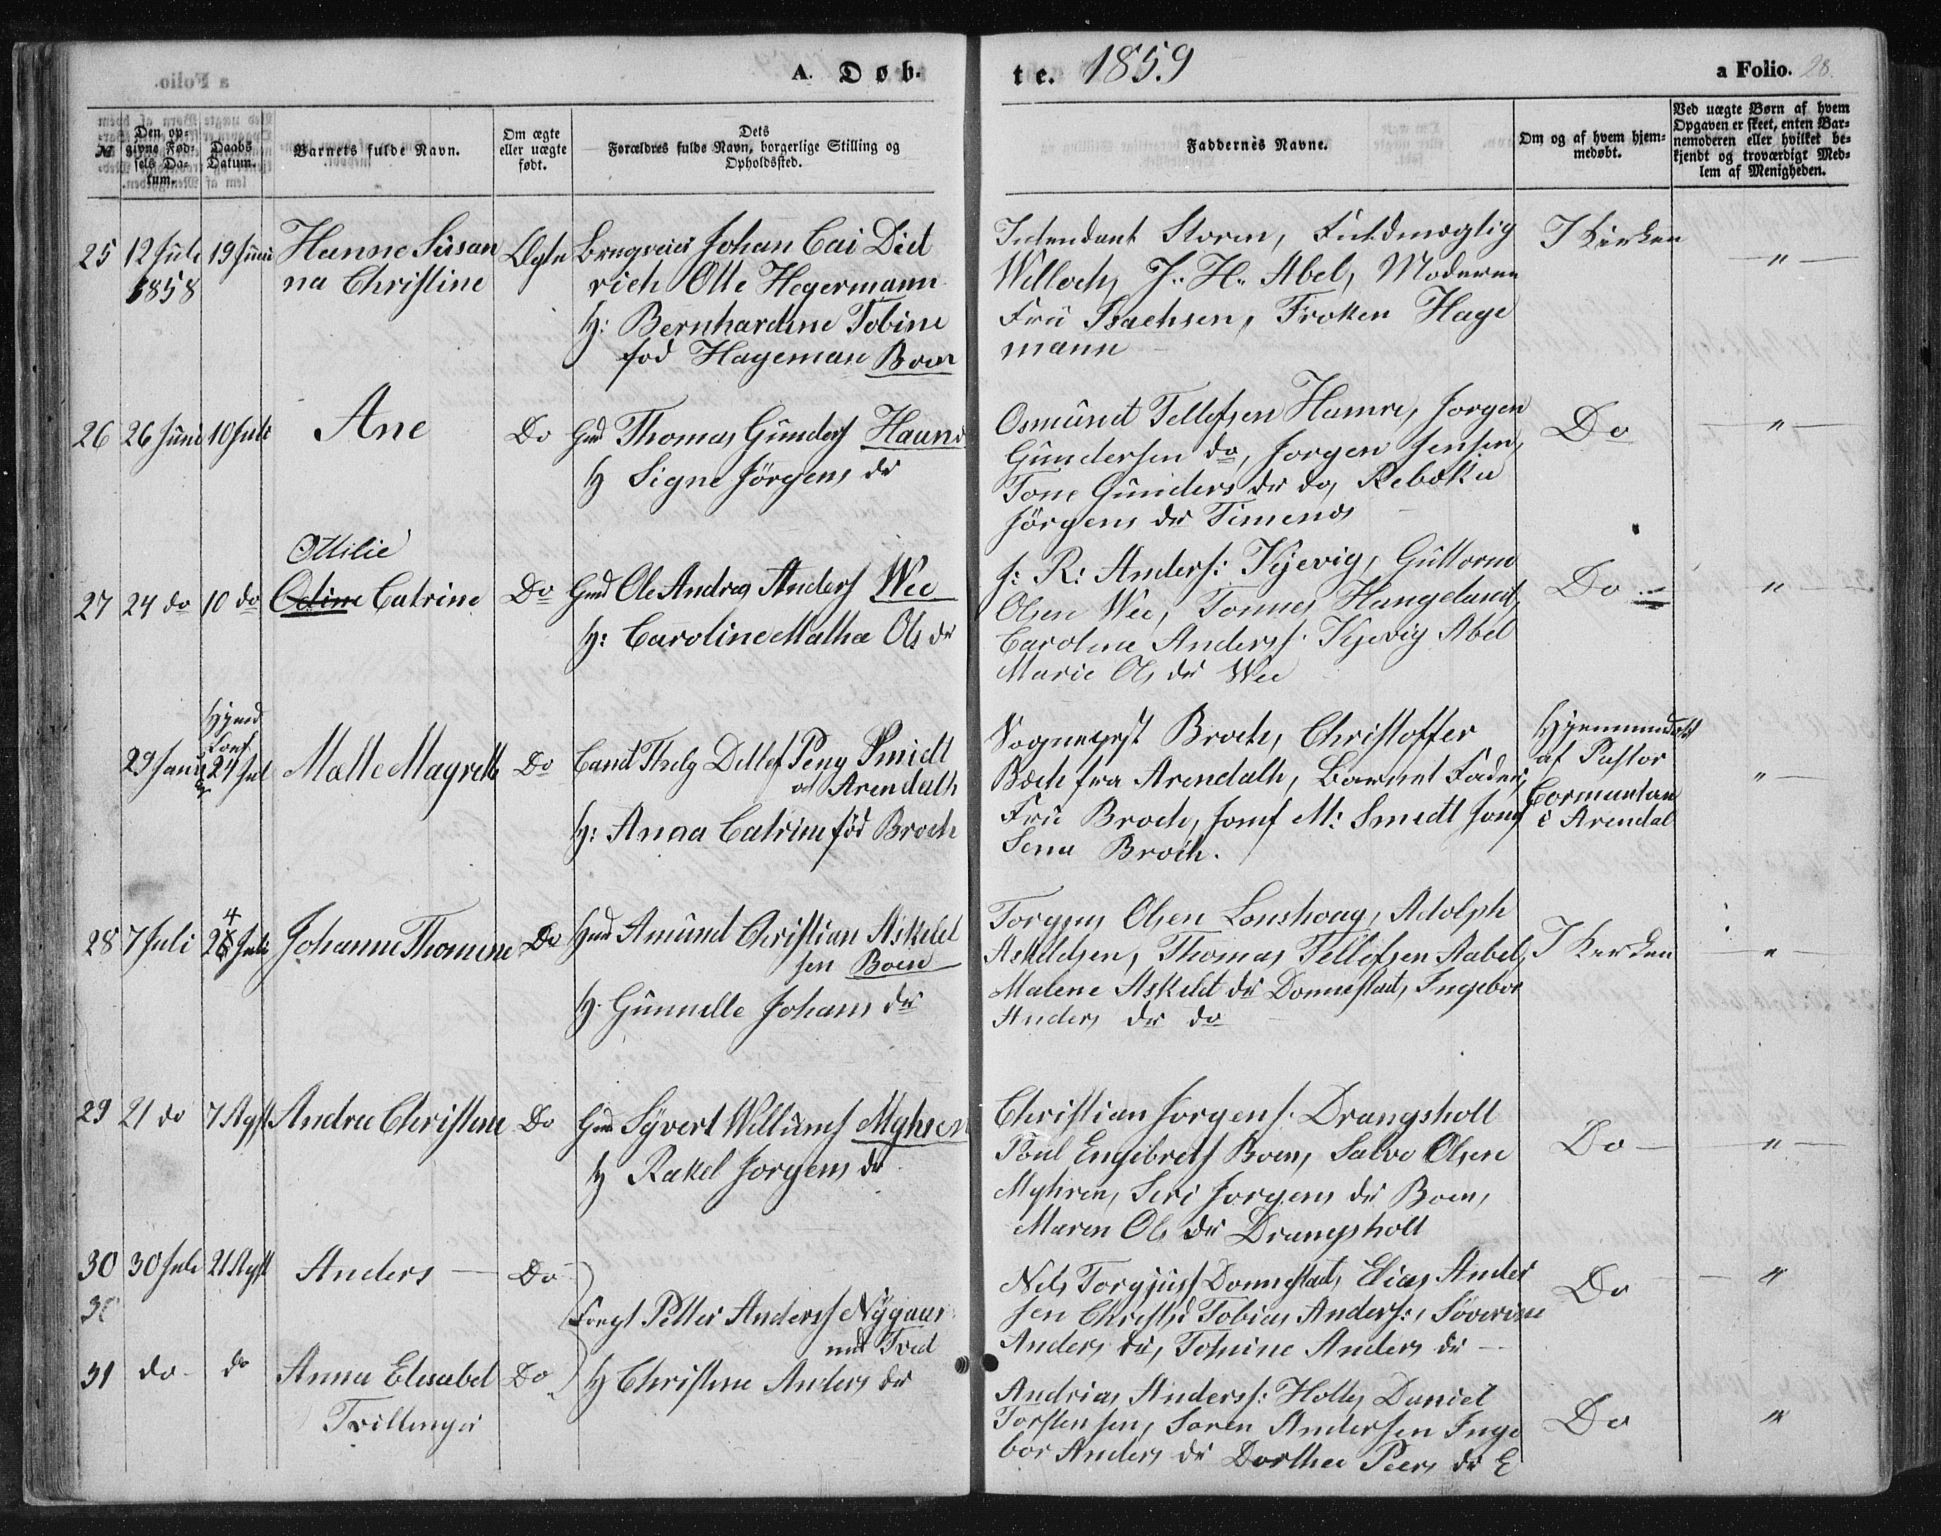 A. Døb- te. 1859 a Folio. 28.
№
Den op-
givne Fød-
sels Da-
tum.
Daabs
Datum.
Barnets fulde Navn.
Om ægte
eller uægte
født.
Dets
Forældres fulde Navn, borgerlige Stilling og
Opholdssted.
Faddernes Navne.
Om og af hvem hjem-
medøbt.
Ved uægte Børn af hvem
Opgaven er skeet, enten Bar-
nemoderen eller hvilket be-
kjendt og troværdigt Med-
lem af Menigheden.
25 12 Juli 19 Juni Hanne Susan Ægte Brugseier Johan Cai Diet
1858 na Christine rich Otto Hegermann
H: Bernhardine Tobine
fød Hageman Boen
Intendant Storm, Fuldmægtig
Willoch, J. H. Abel, Moderen
Fru Isachsen, Frøken Hage
mann
I Kirken "
26 26 Juni 10 Juli Ane Do Gmd Thomas Gunders
H Signe Jörgens dr
Osmund Tellefsen Hamre, Jorgen
Gundersen do, Jorgen Jensen,
Tone Gunders dr do, Rebekka
Jörgens dr Timenes
Do "
Ottilie
27 24 do 10 do Catrine Do Gmd Ole Andreas Anders Wee
H: Caroline Mathea Ols dr
J: R: Anders: Kjevig, Guttorm
Olsen Wee, Tonnes Haugeland,
Carolina Anders: Kjevig Abel
Marie Ols dr Wee
Do "
Hjemd
29 Jan 24 Malle Magrethe Do Cand Theol Detlef Smidt
Arendalh
H: Anna Catrine fød Broch
Sogneprest Broch, Christoffer
Boch fra Arendalh, Barnets Fader,
Fru Broch, Jomf M: Smidt Jomf
Lena Broch.
Hjemmedøbt
af Pastor
i Arendal
"
28 7 Juli 24 Juli Johanne Thomine Do Gmd Amund Christian Askeld
sen Boen
H. Gunnelle Johans dr
Torgjus Olsen Lonshoug, Adolph
Askeldsen, Thomas Tellefsen Aabel,
Malene Askeld dr Donnestad, Ingebor
Anders dr do
I Kirken "
29 21 do 7 Agst Andrea Christine Do Gmd Syvert Willums Myhren
H Rakel Jorgens dr
Christian Jorgens. Drangsholt
Poul Engebrets Boen, Salve Olsen
Myhren, Seri Jorgens dr Boen,
Maren Ols dr Drangsholt
Do "
30 30 Juli 21 Agst Anders Do
Petter Anders Nygaar
Tved
H Christine Anders dr
Nels Torgjus Donnestad, Elias Ander
sen Tobias Anders:, Søverine
Anders dr, Tomine Anders dr
Do "
31 do do Anna Elisabet Do
Tvillinger
Andrias Anders: Holte, Daniel
Torstensen, Soren Andersen Inge
bor Anders dr Dorthea Peers dr E
Do "